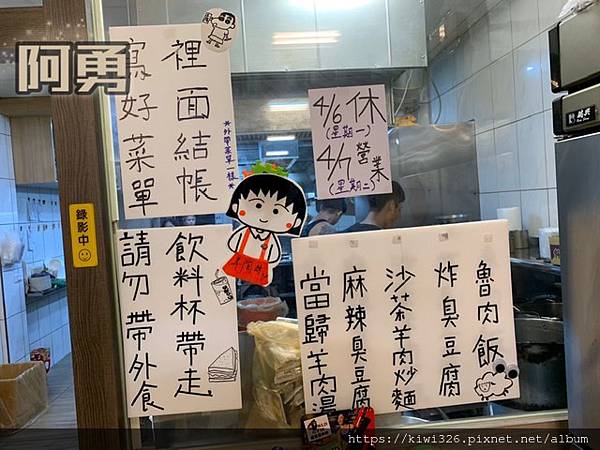 阿勇
寫好菜單
裡面結帳
*外帶菜單一樣*
錄影中
請勿帶外食
飲料杯帶走
4/6休
(星期一)
4/7營業
(星期二)
魯肉飯
炸臭豆腐
沙茶羊肉炒麵
麻辣臭豆腐
當歸羊肉湯
https://kiwi326.pixnet.net/album